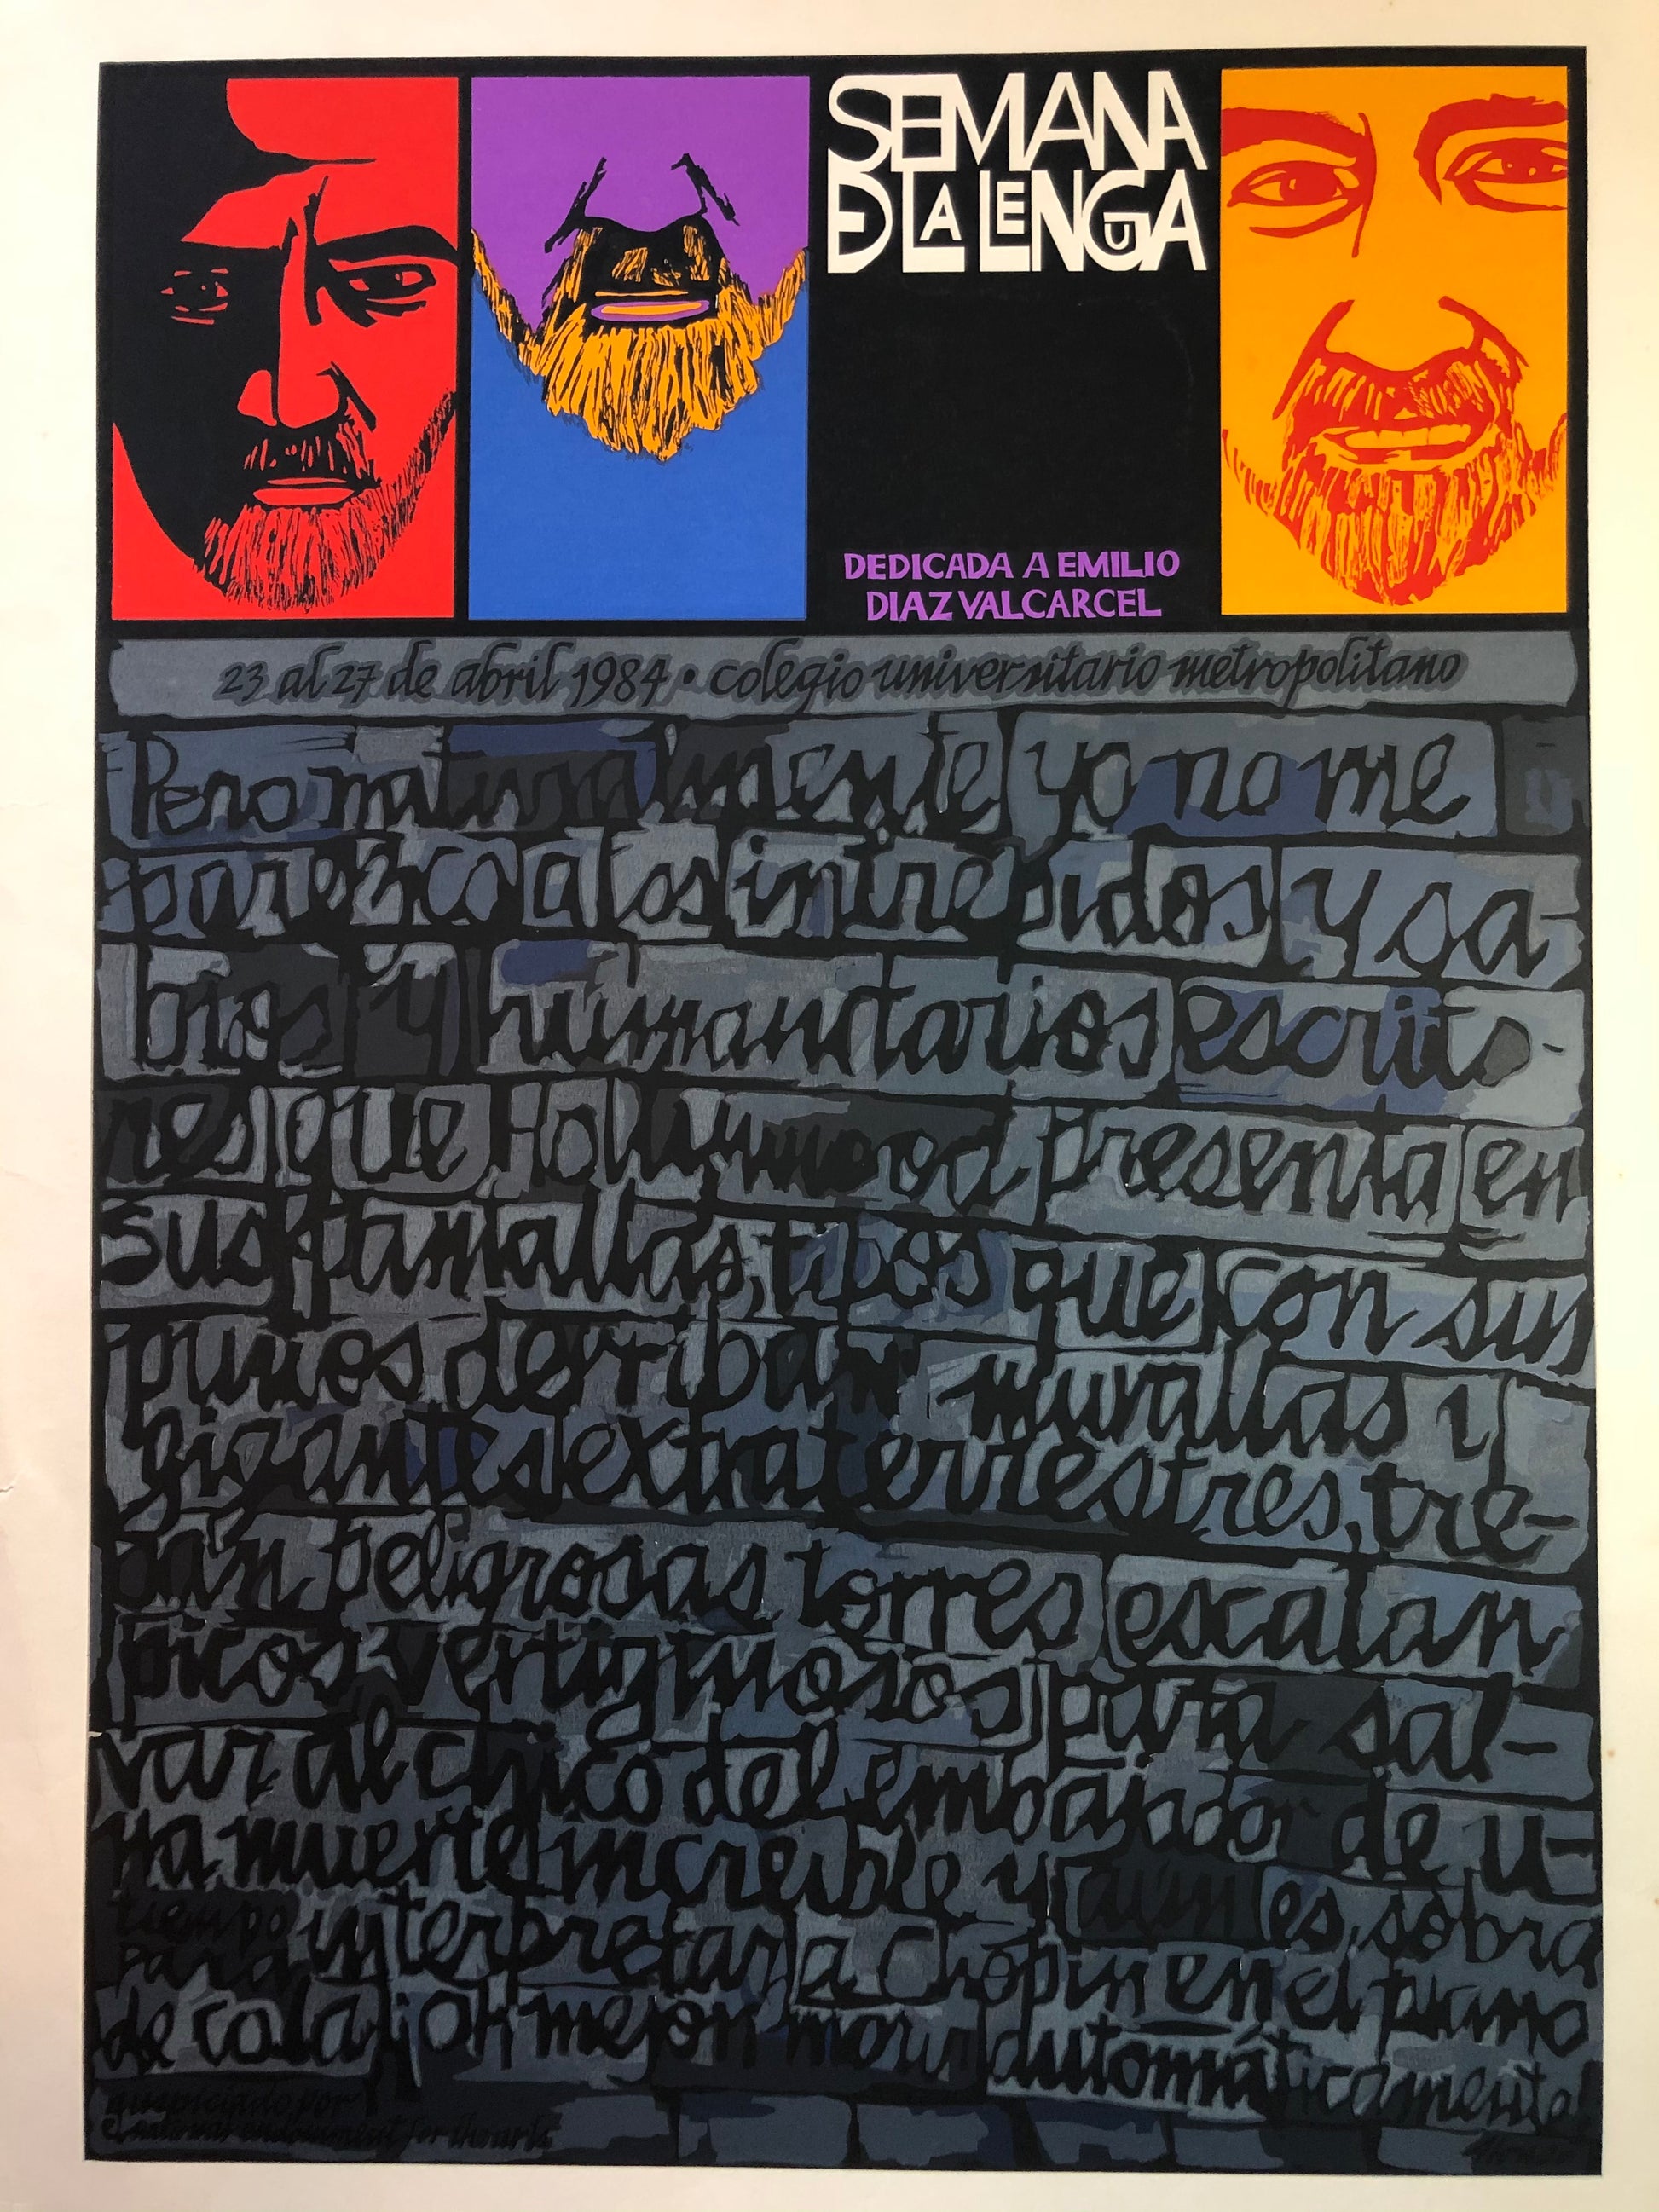 SEMANA
DE LA LENGUA
DEDICADA A EMILIO
DIAZ VALCARCEL
23 al 27 de abril 1984 • colegio universitario metropolitano
Pero naturalmente yo no me
parezco a los intrépidos y sa-
bios y humanitarios escrito-
res que Hollywood presenta en
sus pantallas, tipos que con sus
puños derriban murallas y
gigantes extraterrestres, tre-
pan peligrosas torres escalan
picos vertiginosos para sal-
var al chico del embajador de u-
na muerte increible y aún les sobra
tiempo
para interpretar a Chopin en el piano
de cola ¡oh mejor morir automáticamente!
auspiciado por
el national endowment for the arts